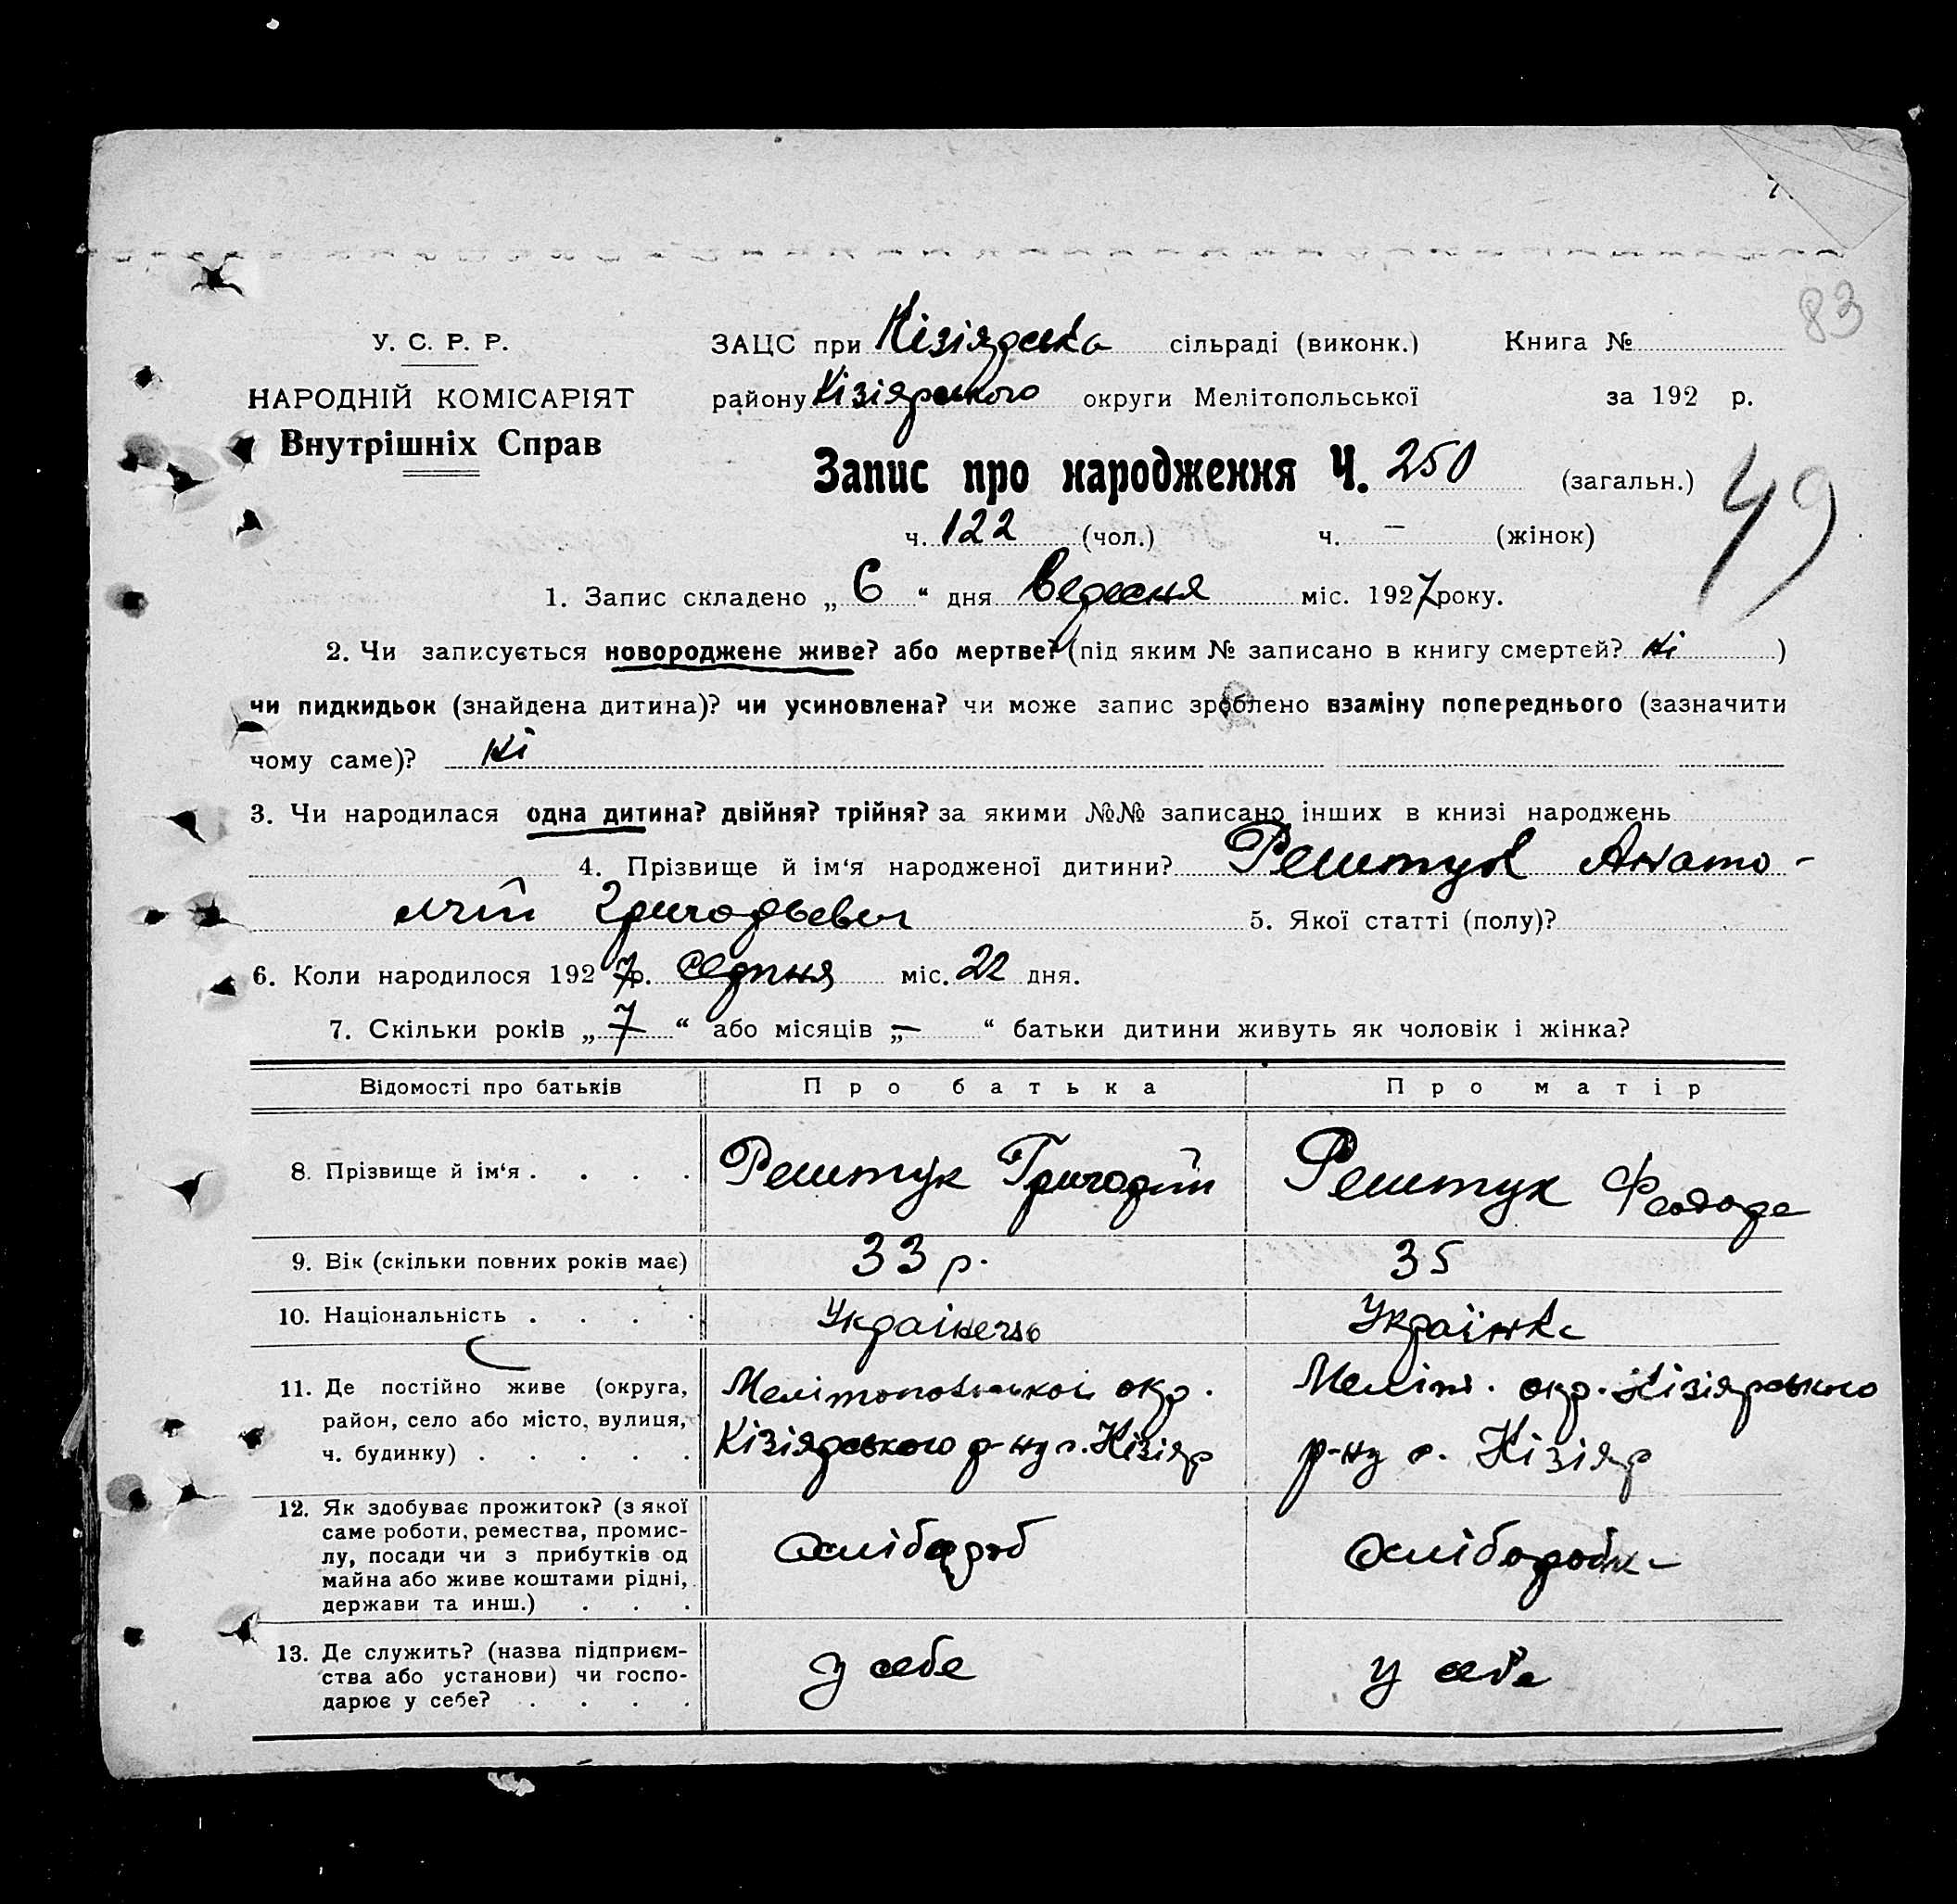 83
У. С. Р. Р.
НАРОДНІЙ КОМІСАРІЯТ
Внутрішніх Справ
ЗАЦС при Кізіярська сільраді (виконк.) Книга №
району Кізіярського округи Мелітопольської за 192 р.
Запис про народження Ч. 250 (загальн.)
49
ч. 122 (чол.) ч. — (жінок)
1. Запис складено „ 6 “ дня Вересня міс. 1927 року.
2. Чи записується новороджене живе? або мертве? (під яким № записано в книгу смертей? Ні )
чи пидкидьок (знайдена дитина)? чи усиновлена? чи може запис зроблено взаміну попереднього (зазначити
чому саме)? Ні
3. Чи народилася одна дитина? двійня? трійня? за якими №№ записано інших в книзі народжень
4. Прізвище й ім‘я народженої дитини? Решетук Анато-
лій Григорьевич 5. Якої статті (полу)?
6. Коли народилося 1927 р. серпня міс. 22 дня.
7. Скільки років „ 7 “ або місяців „ — “ батьки дитини живуть як чоловік і жінка?
Відомості про батьків Про батька Про матір
8. Прізвище й ім‘я . . . . Решетук Григорій Решетук Феодора
9. Вік (скільки повних років має) 33 р. 35
10. Національність . . . . Українець Українка
11. Де постійно живе (округа, Мелітопольської окр. Меліт. окр. Кізіярського
район, село або місто, вулиця,
ч. будинку) . . . . . Кізіярського р-ну с. Кізіяр р-ну с. Кізіяр
12. Як здобуває прожиток? (з якої
саме роботи, ремества, промис-
лу, посади чи з прибутків од хлібороб хліборобка
майна або живе коштами рідні,
держави та инш.) . . .
13. Де служить? (назва підприєм-
ства або установи) чи госпо- у себе у себе
дарює у себе? . . . .